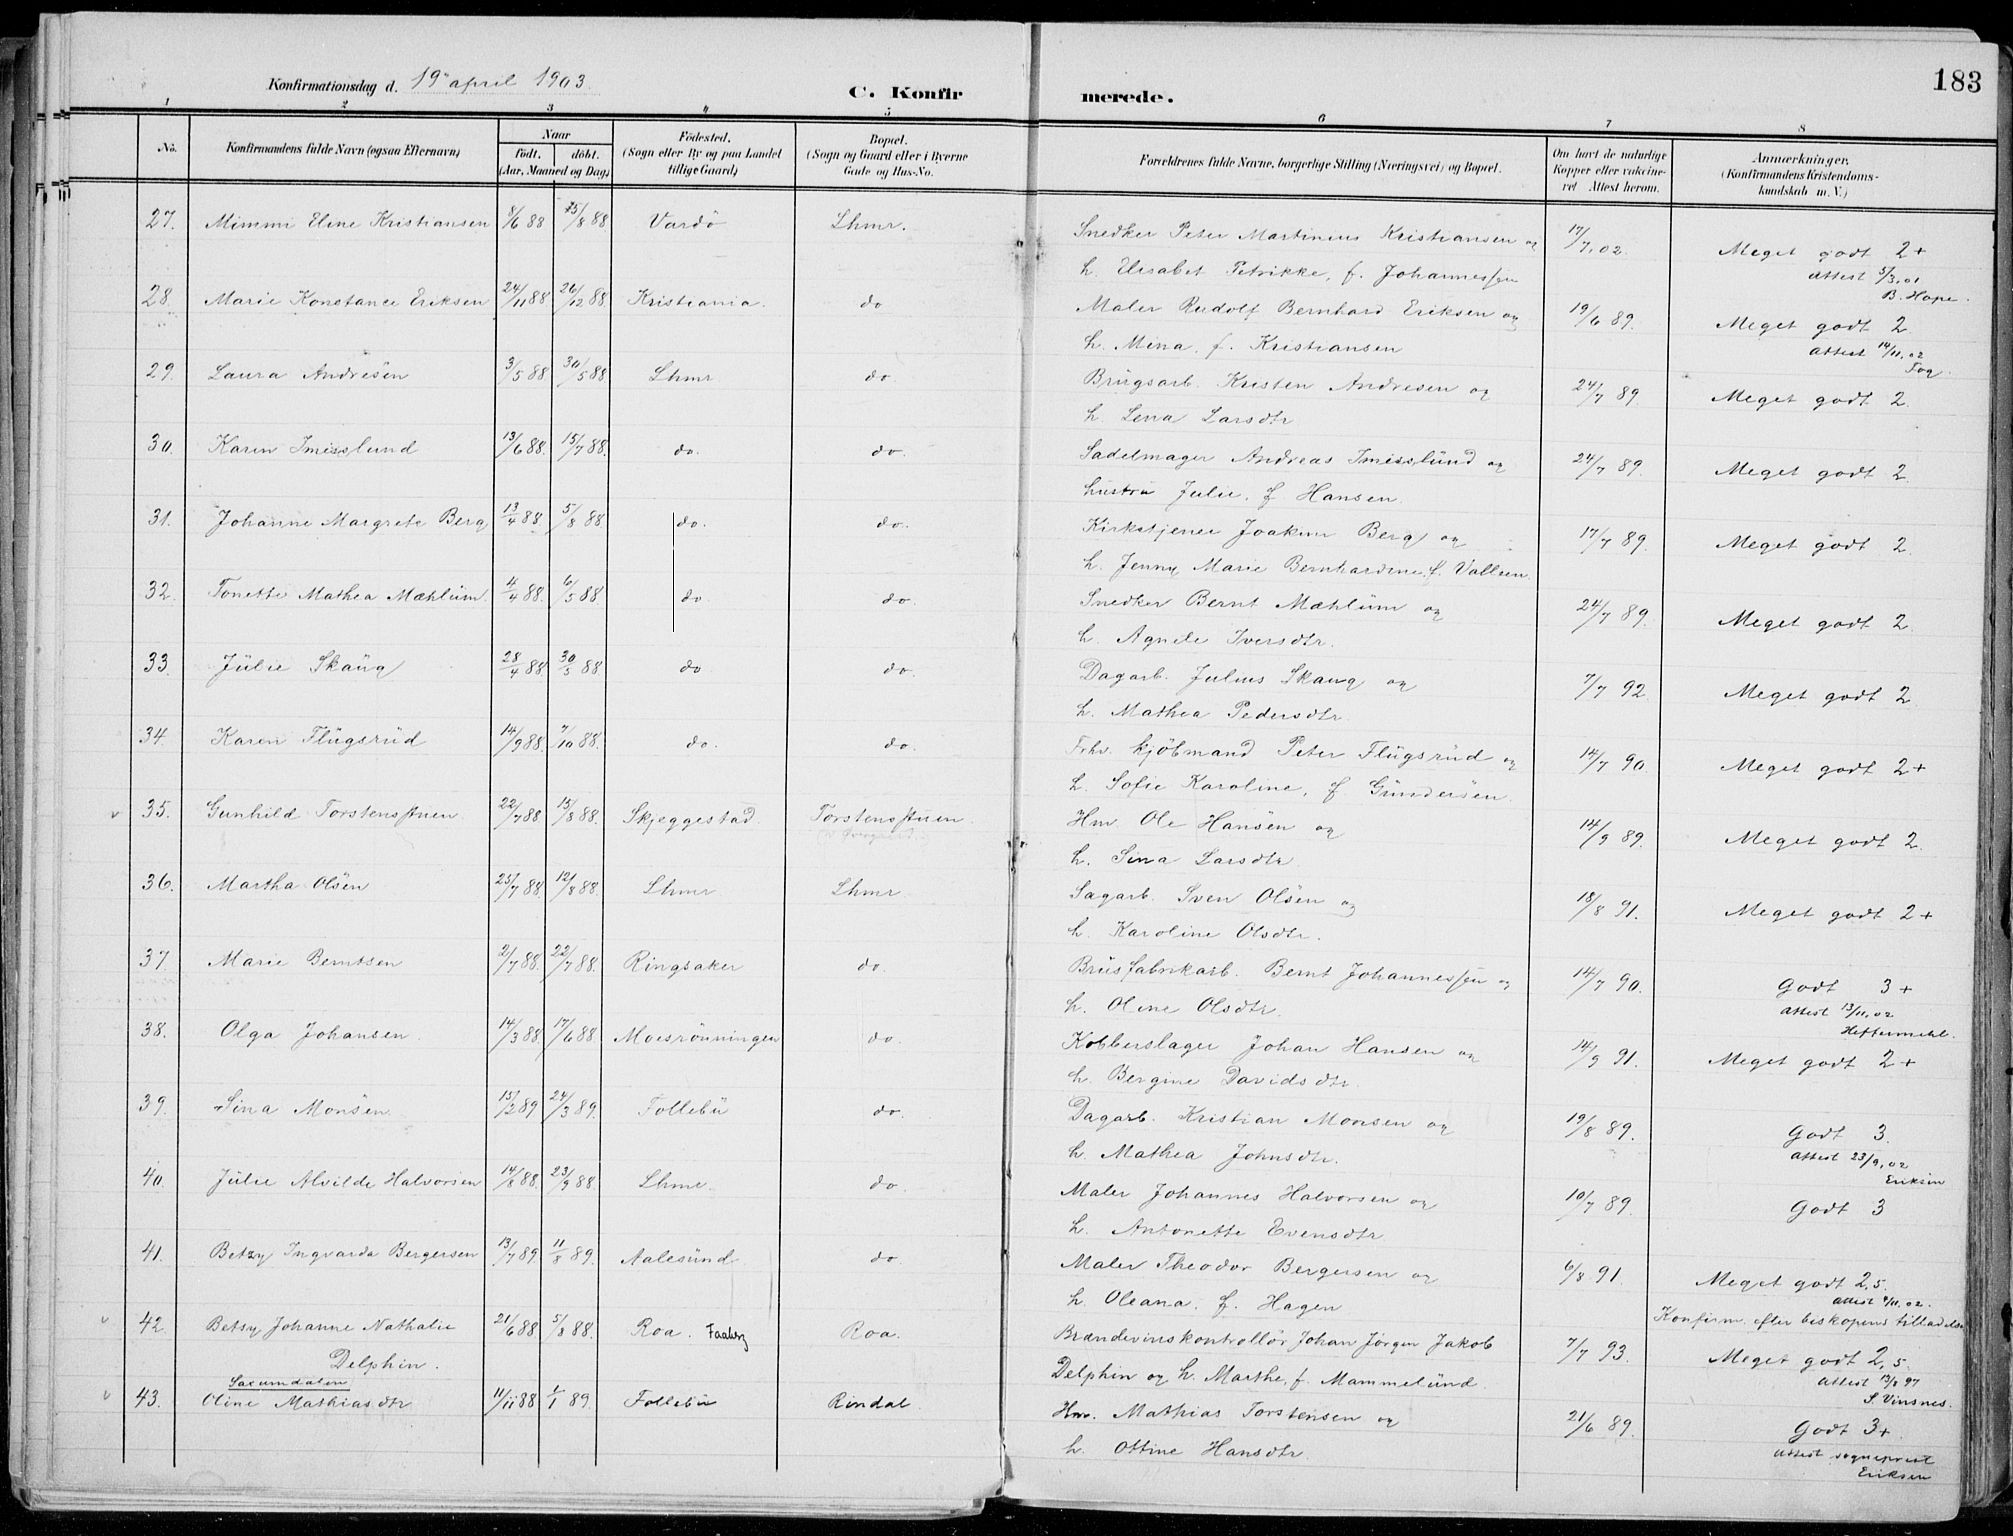 183
Konfirmationsdag d. 19 april 1903.
C. Konfir merede.
1 2 3 4 5 6 7 8
No. Konfirmandens fulde Navn (ogsaa Efternavn) Naar Födested. Bopæl. Forældrenes fulde Navne, borgerlige Stilling (Næringsvei) og Bopæl. Om havt de naturlige Anmærkninger.
födt. döbt. (Sogn eller By og paa Landet (Sogn og Gaard eller i Byerne Kopper eller vakcine- (Konfirmandens Kristendoms-
(Aar, Maaned og Dag) tillige Gaard) Gade og Hus-No. ret Attest herom. kundskab m. V.)
27. Mimmi Eline Kristiansen 8/6 88 15/8 88 Vardö Lhmr. Snedker Peter Martinius Kristiansen og 17/7.02. Meget godt 2+
h. Elisabet Petrikke, f. Johannessen Attest 5/3.01
B. Hope.
28. Marie Konstance Eriksen 24/11 88 26/12 88. Kristiania. do Maler Rudolf Bernhard Eriksen og 19/6 89. Meget godt 2
h. Mina, f. Kristiansen Attest 14/11.02
29. Laura Andresen 3/5 88 30/5 88 Lhmr do. Brugsarb. Kristen Andresen og 24/7 89 Meget godt 2
h. Lena Larsdtr
30. Karen Imisslund 13/6 88. 15/7 88. do. do. Sadelmager Andreas Imisslund og 24/7 89. Meget godt 2
hustru Julie, f Hansen.
31. Johanne Margrete Berg 13/4 88. 5/8 88 do. do. Kirketjener Joakim Berg og 17/7 89. Meget godt 2.
h. Jenny Marie Bernhardine, f. Vallsen
32. Tonette Mathea Mæhlum. 4/4 88. 6/5 88 do. do. Snedker Bernt Mæhlum og 24/7 89. Meget godt 2
h. Agnete Iversdtr.
33. Julie Skaug 28/4 88. 30/5 88. do do. Dagarb. Julius Skaug og 7/7 92. Meget godt 2
h. Mathea Pedersdtr.
34. Karen Flugsrud 14/9 88. 7/10 88. do. do. Frhv. Kjöbmand Peter Flugsrud og 14/7 90 Meget godt 2+
h. Sofie Karoline, f Gundersen.
v 35. Gunhild Torstensstuen. 22/7 88 15/8 88. Skjeggestad Torstensstuen. Hm. Ole Hansen og 14/9 89. Meget godt 2.
h. Sina Larsdtr.
36. Martha Olsen 25/7 88. 12/8 88. Lhmr Lhmr Sagarb. Sven Olsen og 18/8 91. Meget godt 2+
h. Karoline Olsdtr.
37. Marie Berntsen 2/7 88. 22/7 88. Ringsaker do. Brusfabrikarb. Bernt Johannessen og 14/7 90. Godt 3+
h. Oline Olsdtr. Attest 13/11.02
Heftermehl.
38. Olga Johansen. 14/3 88. 17/6 88. Moesrönningen do. Kobberslager Johan Hansen og 14/9 91. Meget godt 2+
h. Bergine Davidsdtr.
39. Sina Monsen 15/2 89 24/3 89. Follebu do. Dagarb. Kristian Monsen og 19/8 89. Godt 3.
h. Mathea Johnsdtr. Attest 23/9.02
Eriksen
40. Julie Alvilde Halvorsen 14/8 88. 23/9 88. Lhmr. do. Maler Johannes Halvorsen og 10/7 89. Godt 3
h. Antonette Evensdtr
41. Betzy Ingvarda Bergersen 13/7 89 11/8 89. Aalesund do Maler Theodor Bergersen og 6/8 91. Meget godt 2,5.
h. Oleana, f. Hagen Attest 4/11.02.
Konfirm. efter biskopens tilladelse
v 42. Betsy Johanne Nathalie 21/6 88 5/8 88. Roa. Faaberg Roa. Brændevinskontrollör Johan Jörgen Jakob 7/7 93. Meget godt 2,5
Delphin. Delphin og h. Marthe, f. Mammelund. Attest 13/8 97
S. Vinsnes.
Saxumdalen
v 43. Oline Mathiasdtr 11/11 88 1/1 89. Follebu Rindal Hm. Mathias Torstensen og 21/6 89. Godt 3+
h. Ottine Hansdtr. Attest sogneprest
Eriksen